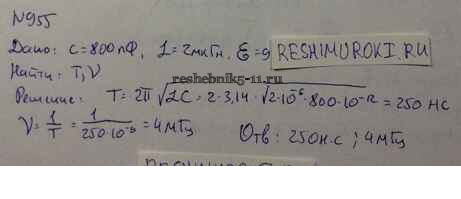 N955
Дано: C=800пФ, L=2мкГн, ℰ=9 RESHIMUROKI.RU
Найти: T, ν
reshebnik5-11.ru
Решение: T=2π√LC = 2·3,14·√2·10⁻⁶·800·10⁻¹² = 250 нс
ν = 1/T = 1/250·10⁻⁹ = 4 мГц Отв: 250н.с ; 4мГц